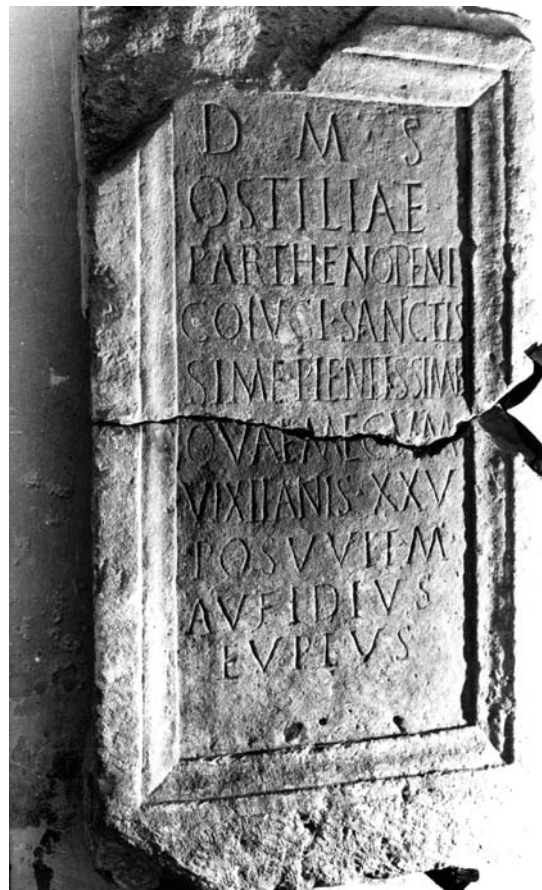 D M S
OSTILIAE
PARTHENOPENI
COIVGI·SANCTIS
SIME PIENTISSIME
QVAE MECVM
VIXIT ANIS·XXV
POSVVIT M
AVFIDIVS
EVPLVS